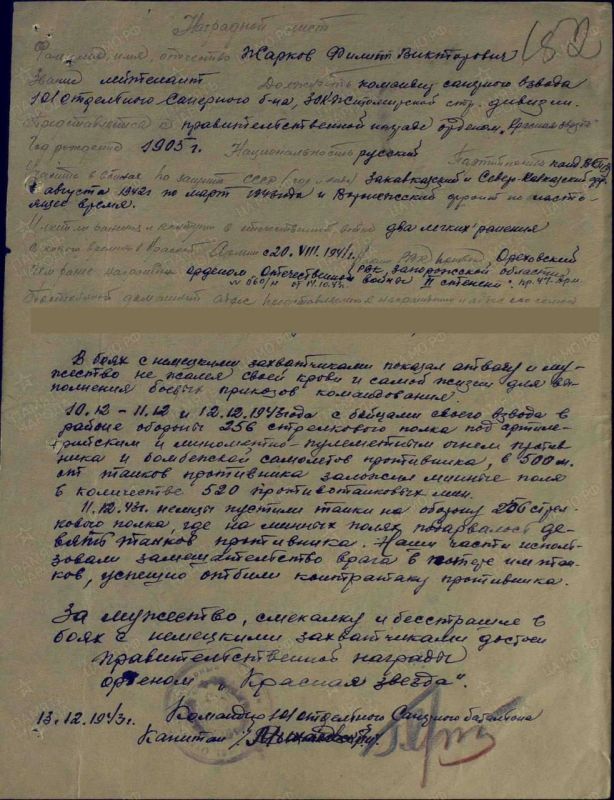 Наградной лист
152
Фамилия, имя, отчество Жарков Филипп Викторович
Звание лейтенант Должность командир саперного взвода
101 отдельного Саперного б-на, Житомирской стр. дивизии.
Представляется к правительственной награде орденом „Красная звезда"
Год рождения 1905 г. Национальность русский Партийность канд.
Участие в боях по защите СССР Закавказский и Северо-Кавказский
августа 1942 г по март 1943 года и Воронежский фронт по насто-
ящее время.
Имеет ли ранения и контузии в отечественной войне два легких ранения
С какого времени в Красной Армии с 20. VIII. 1941 г. Каким РВК призван Ореховский
РВК, Запорожской области
Чем ранее награжден орденом „Отечественной войны II степени." пр. 47 Арм.
№ 060/н от 14.10.43 г.
Постоянный домашний адрес представляемого к награждению и адрес его семьи
В боях с немецкими захватчиками показал отвагу и му-
жество не жалея своей крови и самой жизни для вы-
полнения боевых приказов командования.
10.12 – 11.12 и 12.12.1943 года с бойцами своего взвода в
районе обороны 256 стрелкового полка под артил-
лерийским и минометно-пулеметным огнем против-
ника и бомбежкой самолетов противника, в 500 м.
от танков противника заложил минные поля
в количестве 520 противотанковых мин.
11.12.43 г. немцы пустили танки на оборону 256 стрел-
кового полка, где на минных полях подорвалось де-
вять танков противника. Наши части исполь-
зовали замешательство врага в потере им тан-
ков, успешно отбили контратаку противника.
За мужество, смекалку и бесстрашие в
боях с немецкими захватчиками достоин
правительственной награды
орденом „Красная звезда".
13.12.1943 г. Командир 101 отдельного Саперного батальона
Капитан